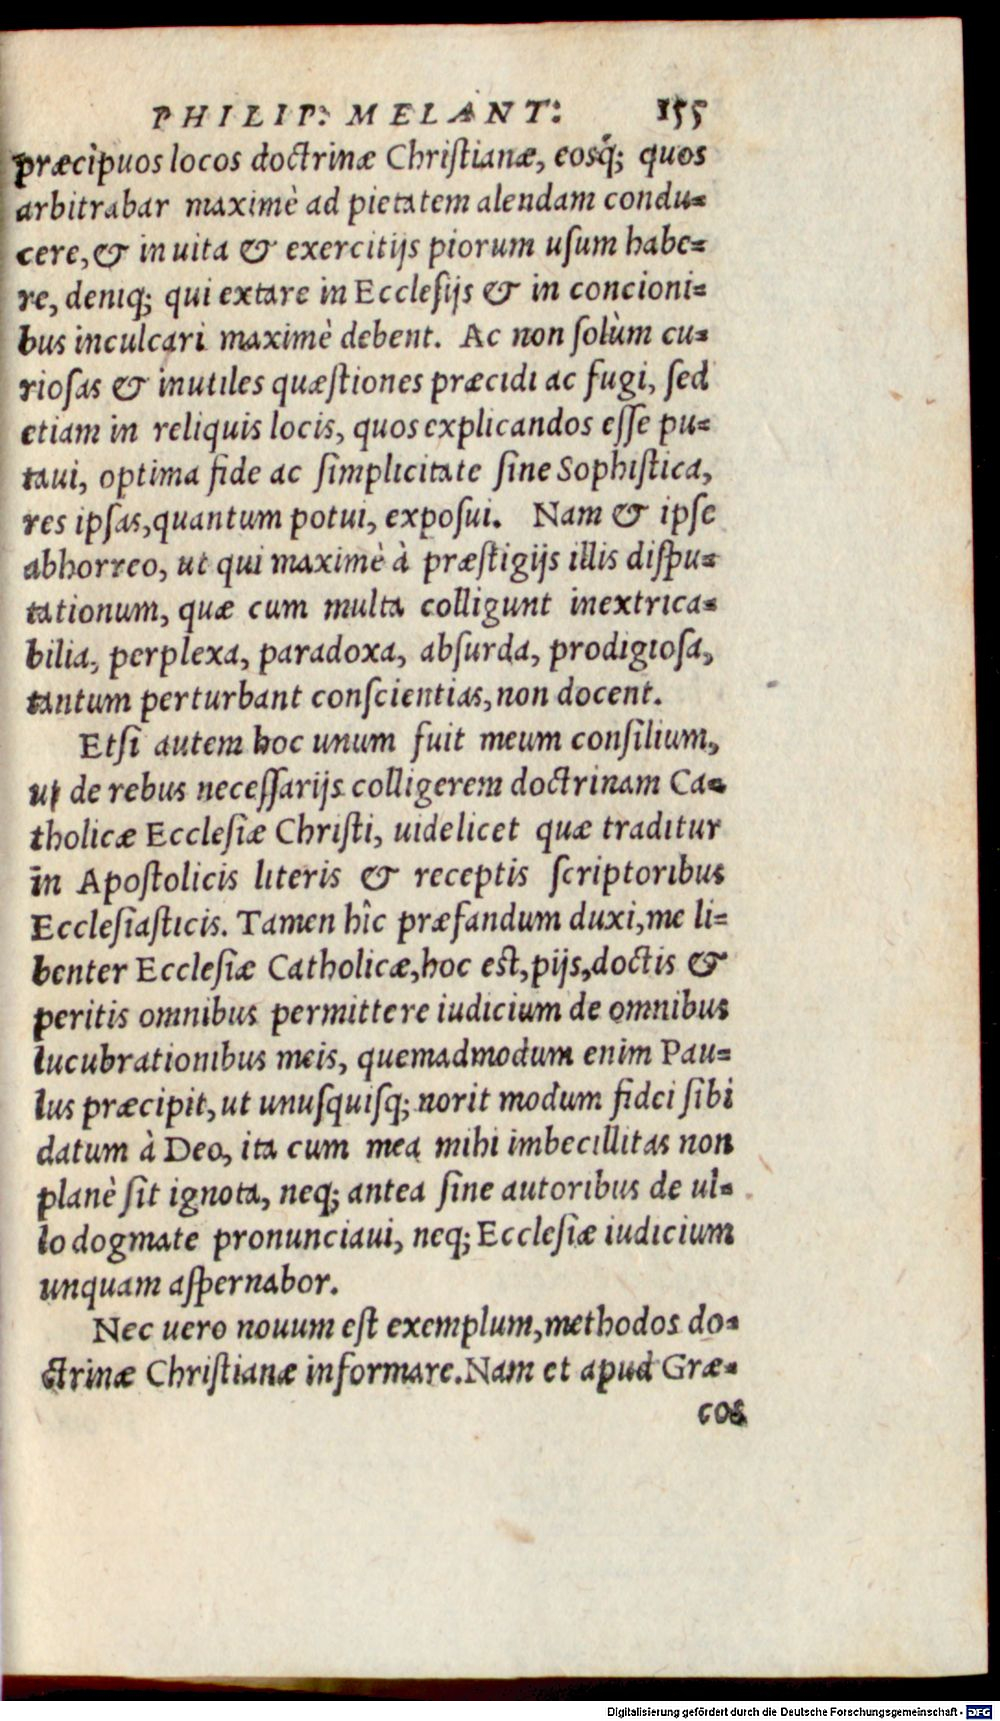 PHILIP: MELANT: 155
præcipuos locos doctrinæ Chriſtianæ, eosq́; quos
arbitrabar maximè ad pietatem alendam condu-
cere, & in uita & exercitijs piorum uſum habe-
re, deniq; qui extare in Eccleſijs & in concioni-
bus inculcari maximè debent. Ac non ſolùm cu-
rioſas & inutiles quæſtiones præcidi ac fugi, ſed
etiam in reliquis locis, quos explicandos eſſe pu-
taui, optima fide ac ſimplicitate ſine Sophiſtica,
res ipſas, quantum potui, expoſui. Nam & ipſe
abhorreo, ut qui maximè à præſtigijs illis diſpu-
tationum, quæ cum multa colligunt inextrica-
bilia, perplexa, paradoxa, abſurda, prodigioſa,
tantum perturbant conſcientias, non docent.
Etſi autem hoc unum fuit meum conſilium,
ut de rebus neceſſarijs colligerem doctrinam Ca-
tholicæ Eccleſiæ Chriſti, uidelicet quæ traditur
in Apoſtolicis literis & receptis ſcriptoribus
Eccleſiaſticis. Tamen hîc præfandum duxi, me li-
benter Eccleſiæ Catholicæ, hoc est, pijs, doctis &
peritis omnibus permittere iudicium de omnibus
lucubrationibus meis, quemadmodum enim Pau-
lus præcipit, ut unuſquiſq; norit modum fidei ſibi
datum à Deo, ita cum mea mihi imbecillitas non
planè ſit ignota, neq; antea ſine autoribus de ul-
lo dogmate pronunciaui, neq; Eccleſiæ iudicium
unquam aſpernabor.
Nec uero nouum eſt exemplum, methodos do-
ctrinæ Chriſtianæ informare. Nam et apud Græ-
cos
Digitalisierung gefördert durch die Deutsche Forschungsgemeinschaft - DFG